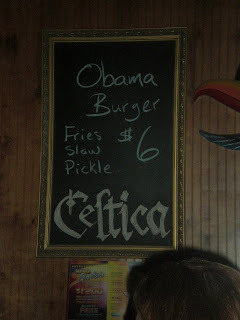 Obama
Burger
Fries $6
Slow
Pickle
Celtica